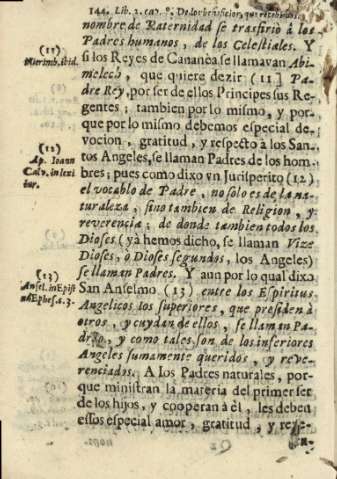 144. Lib. 2. cap. 8. De los beneficios, que recebimos
nombre de Paternidad se trasfiriò à los
Padres humanos, de los Celestiales. Y
si los Reyes de Cananèa se llamavan Abi-
melech, que quiere dezir (11) Pa-
dre Rey, por ser de ellos Principes sus Re-
gentes; tambien por lo mismo, y por-
que por lo mismo debemos especial de-
vocion, gratitud, y respecto à los San-
tos Angeles, se llaman Padres de los hom-
bres; pues como dixo vn Jurisperito (12)
el vocablo de Padre, no solo es de la na-
turaleza, sino tambien de Religion, y
reverencia; de donde tambien todos los
Dioses (yà hemos dicho, se llaman Vize
Dioses, ò Dioses segundos, los Angeles)
se llaman Padres. Y aun por lo qual dixo
San Anselmo (13) entre los Espiritus
Angelicos los superiores, que presiden à
otros, y cuydan de ellos, se llaman Pa-
dres, y como tales, son de los inferiores
Angeles sumamente queridos, y reve-
renciados. A los Padres naturales, por-
que ministran la materia del primer ser
de los hijos, y cooperan à èl, les deben
essos especial amor, gratitud, y reve-
(11)
Nieremb. ibid.
(12)
Ap. Ioann
Calv. in lexi
tur.
(13)
Ansel. in Epist
ad Ephes. c. 3.